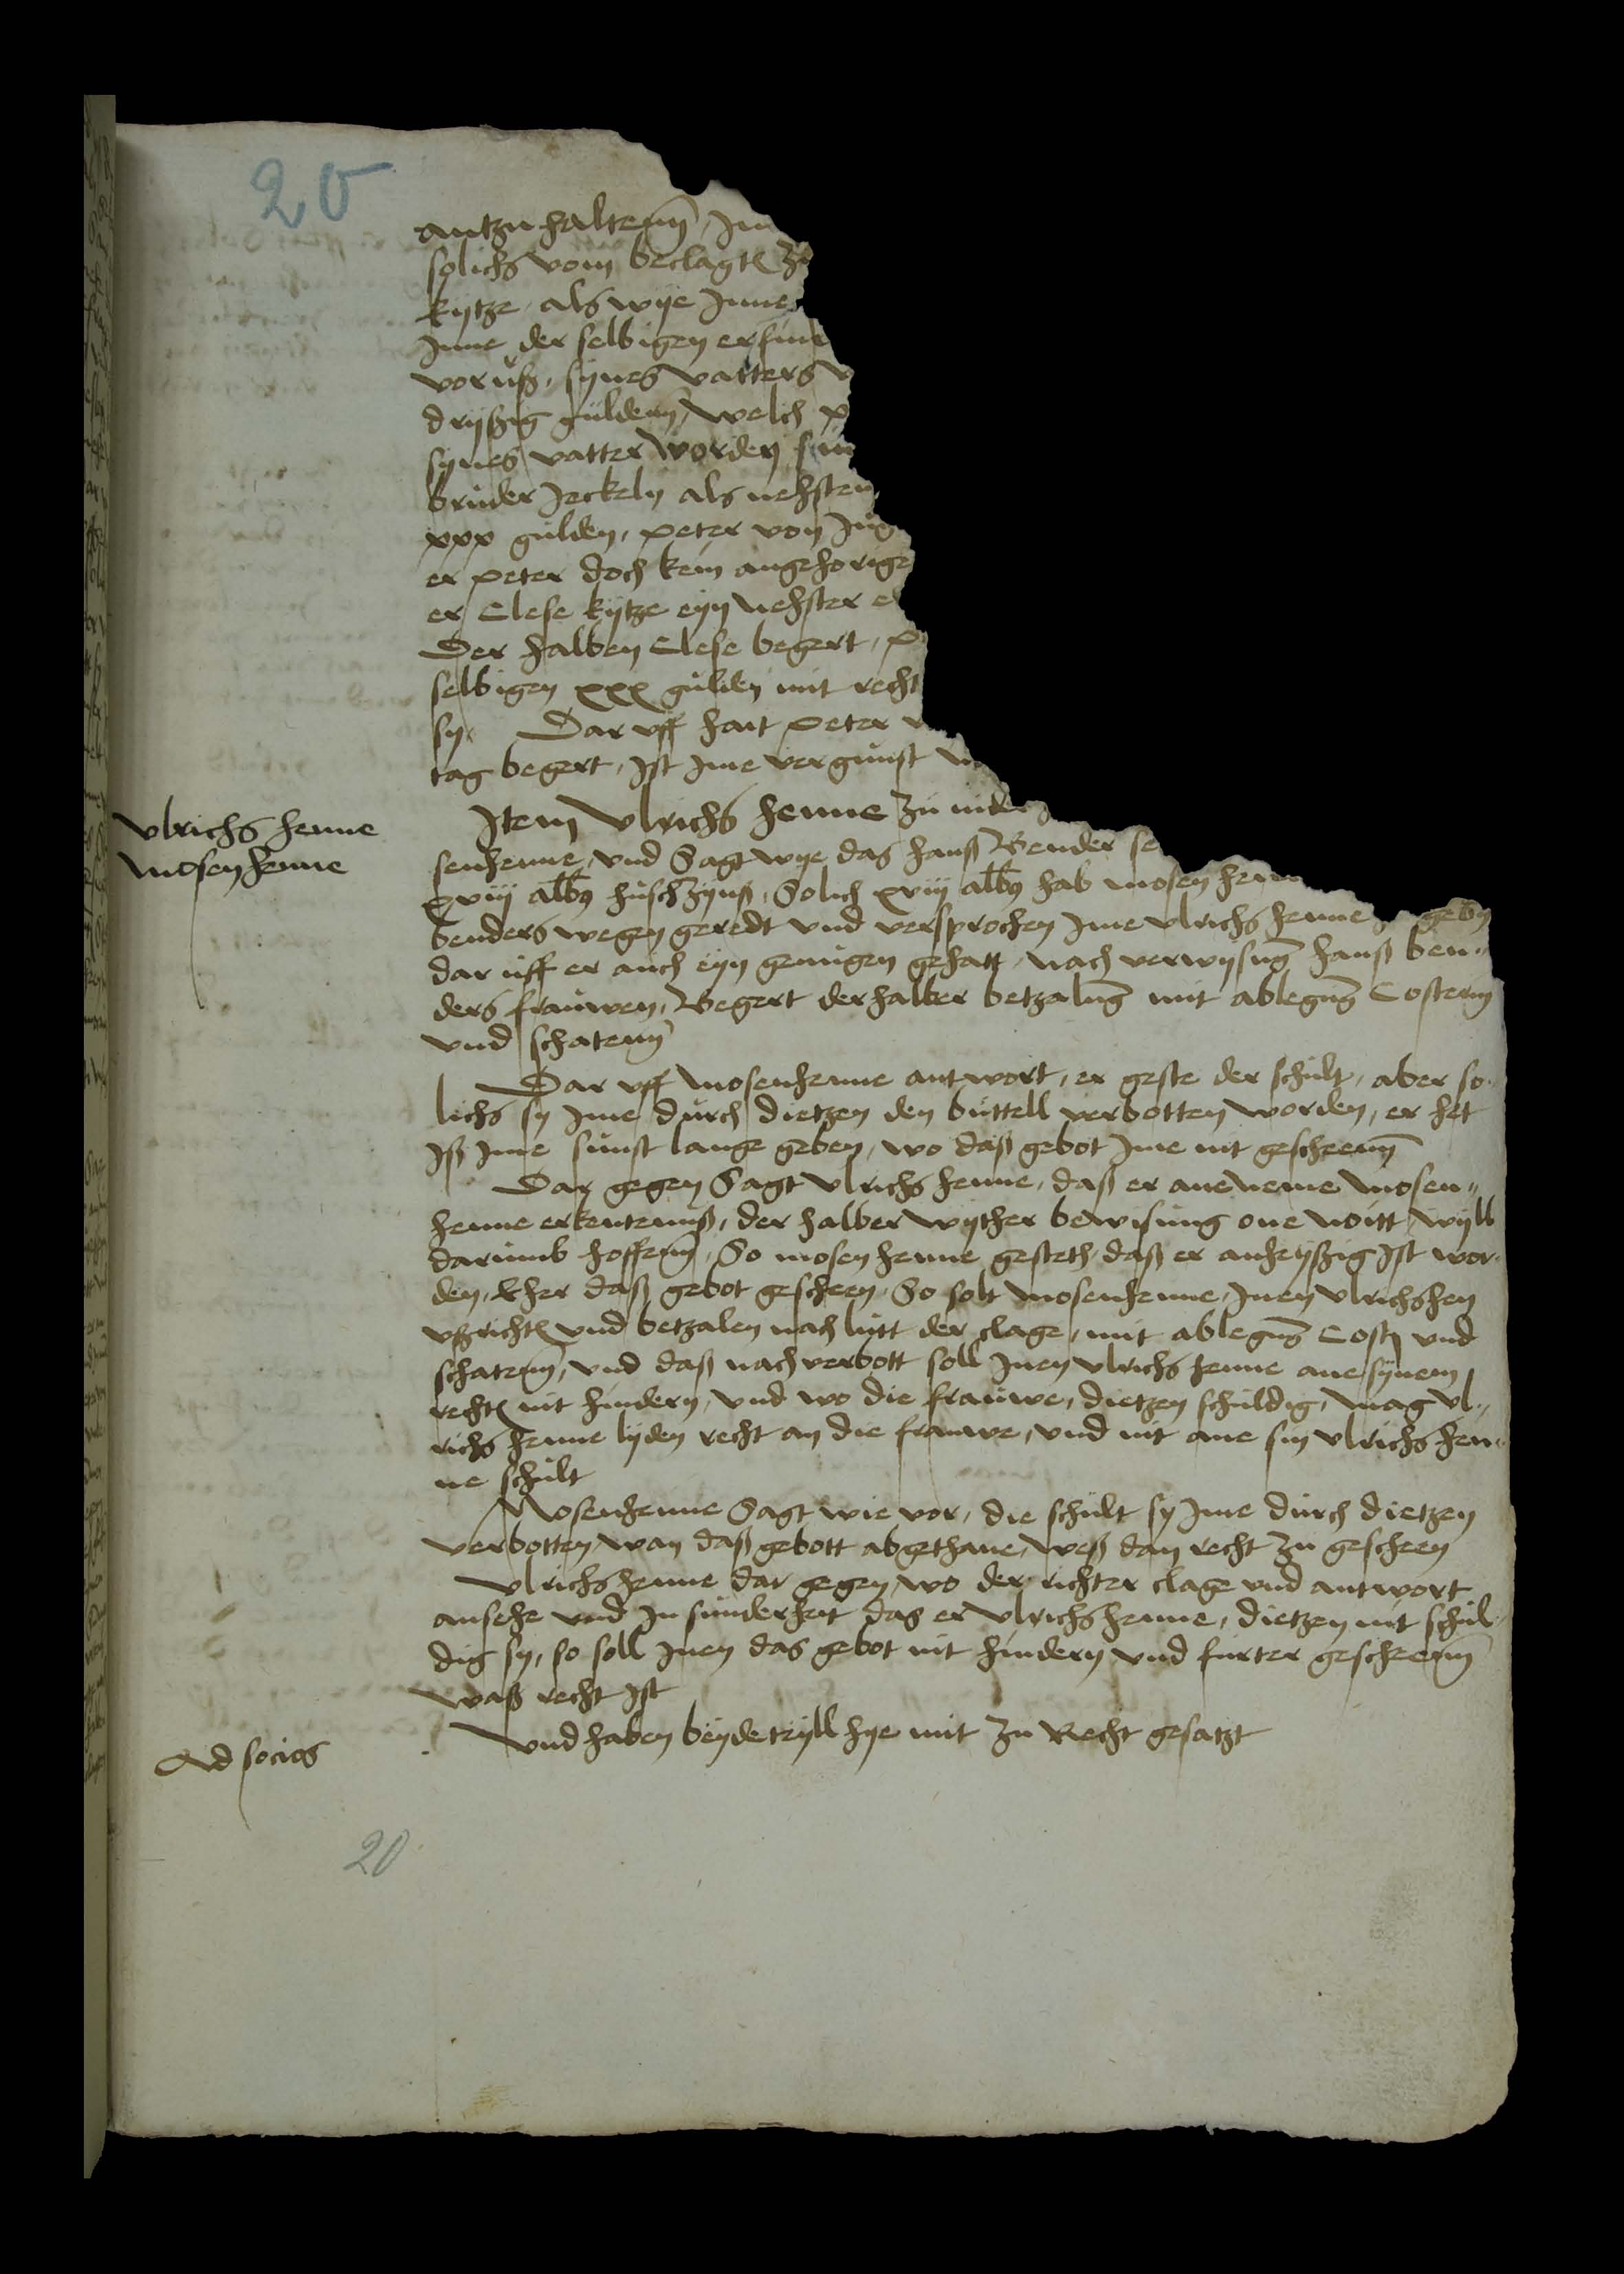 20
antzuhaltenn, Im
solichs vom beclagten zu
kytze, als wye Inne
Inne der selbigen erfün
voruß, synes vatters v
dryßig gulden, welch x
synes vatter worden sin
bruder Jeckeln als nehsten
xxx gulden, peter von Jug
er peter doch kein angehorige
er Clese kytze eyn nehster e
Der halben Clese begert, p
selbigen xxx gulden mit recht
sy Dar vff hait peter v
tag begert, Ist Ime vergunst
Vlrichs henne
Mosen henne
Item Vlrichs henne zu nider
senhenne, vnd Sagt wye das hanß Bender se
xviij albus hußzynß, Solich xviij albus hab mosen henn
benders wegen geredt vnd versprochen Ime vlrichs henne geben
dar uff er auch eyn genugen gehatt, nach verwysung hanß ben-
ders frauwen, Begert derhalber betzalung mit ablegung Costenn
vnd schatenn
Dar vff Mosenhenne antwort, er geste der schult, aber so-
lichs sy Ime durch dietzen den buttell verbotten worden, er het
Iß Ime sunst lange geben, wo daß gebot Ime nit gescheenn
Dar gegen Sagt Vlrichs henne, daß er aneneme Mosen-
henne erkentenuß, der halber wyther bewisung one noitt, wyll
darumb hoffenn, So mosen henne gesteth, daß er anheyßzig Ist wor-
den, Eher daß gebot gescheen, So solt Mosenhenne, Inen vlrichshen
vßrichten vnd betzalen nach lutt der clage, mit ablegung Costen vnd
schatenn, vnd daß nach verbott soll Inen vlrichs henne ane synem
rechten nit hindern, vnd wo die frauwe, dietzen schuldig, mag Vl-
richs henne lyden recht an die frauwe, vnd nit ane sin vlrichs hen-
ne schult
Mosenhenne Sagt wie vor, die schult sy Ime durch dietzen
verbotten, wan daß gebott abgethane, weß dan recht zu gescheen
Vlrichshenne dar gegen, wo der richter clage vnd antwort
ansehe vnd In sunderheit das er Vlrichshenne, dietzen nit schul-
dig sy, so soll Inen das gebot nit hindern vnd furter gescheenn
waß recht Ist
Vnd haben beyde teyll hye mit zu Recht gesatzt
Ad socios
20